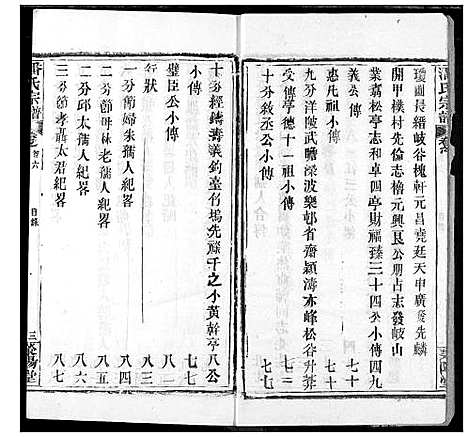 瓊圃晨縉岐谷槐軒元昌堯廷天申廣發先麟
開甲樸村先倫志檜元興艮公朋占志發岐山
業嘉松亭志和卓四亭財福臻三十四公小傳 四九
義公傳
惠凡祖小傳
九分洋陂武瞻深波樂邨省齋穎濤亦峰松谷升芥 七七
受傳學德十一祖小傳
十分敘三公小傳
十分經鑄壽義鈞臺竹塢先
千之小黃幹亭八公
小傳 七七
璧臣公小傳 八二
行狀 八三
一分節婦余孺人紀畧 八四
一分節母林老孺人紀畧 八五
二分邱太孺人紀畧 八六
三分節孝聶太君紀畧 八七
潘氏宗譜
卷首六
目錄
三
滎陽堂